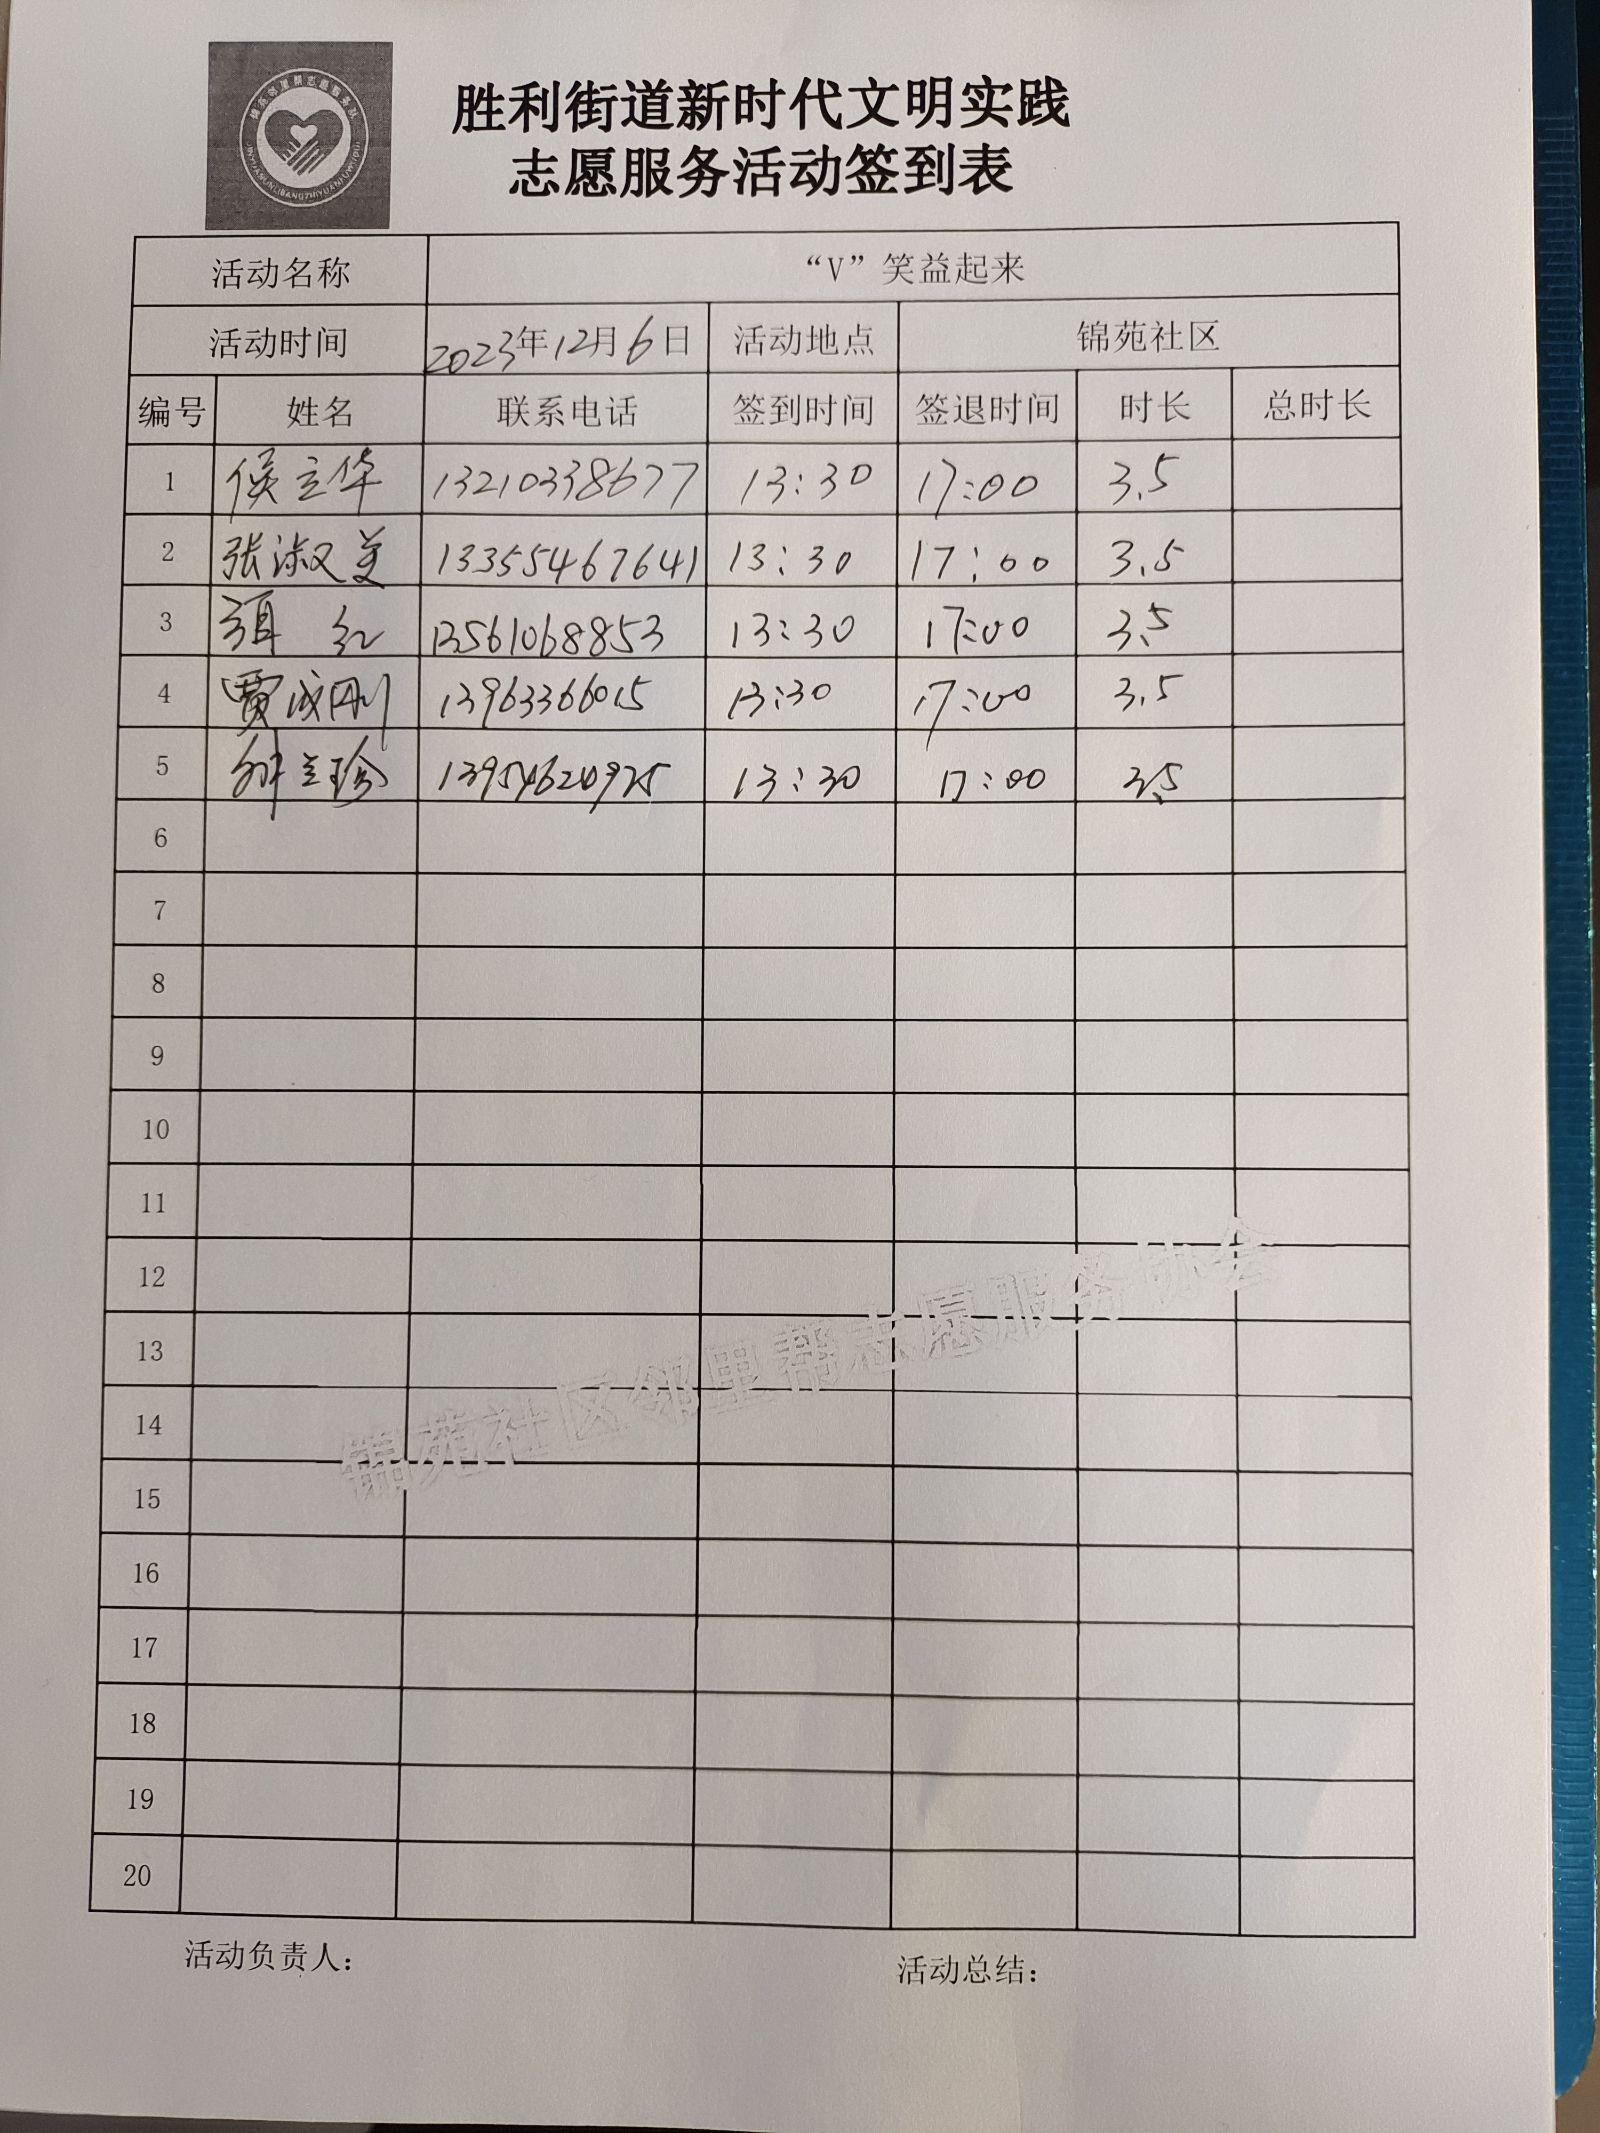 锦苑邻里帮志愿服务队
胜利街道新时代文明实践
志愿服务活动签到表
活动名称 “V”笑益起来
活动时间 2023年12月6日 活动地点 锦苑社区
编号 姓名 联系电话 签到时间 签退时间 时长 总时长
1 侯立华 13210338677 13:30 17:00 3.5
2 张淑美 13355467641 13:30 17:00 3.5
3 红 13561068853 13:30 17:00 3.5
4 贾成刚 13963366015 13:30 17:00 3.5
5 13954620925 13:30 17:00 3.5
6
7
8
9
10
11
12
13
14
15
16
17
18
19
20
锦苑社区邻里帮志愿服务协会
活动负责人: 活动总结: